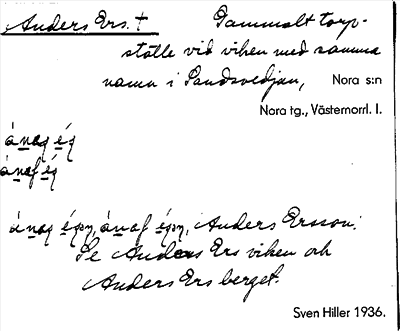 Anders Ers. † Gammalt torp-
ställe vid viken med samma
namn i Sandsvedjan, Nora s:n
Nora tg., Västernorrl. l.
ánaq éq
ánaf éq
ánaq éqn, ánaf éqn, Anders Ersson.
Se Anders Ers viken och
Anders Ers berget.
Sven Hiller 1936.